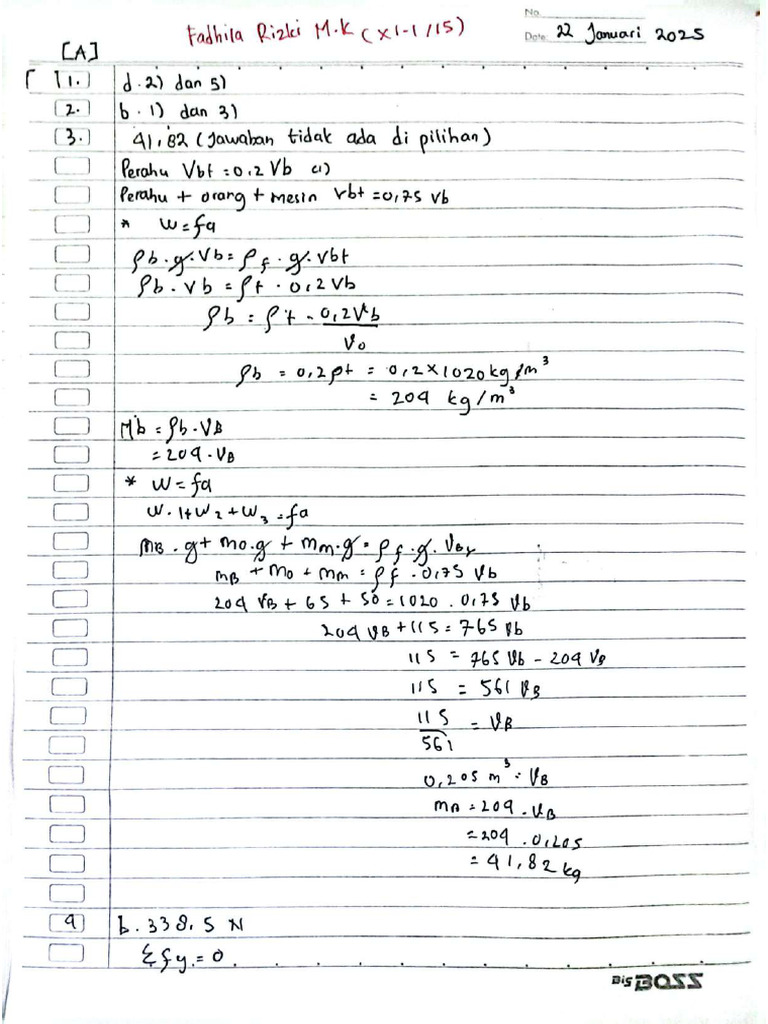 Fadhila Rizki M.K (XI-1/15)
No.
Date. 22 Januari 2025
[A]
1. d. 2) dan 5)
2. b. 1) dan 3)
3. 41,82 (Jawaban tidak ada di pilihan)
Perahu Vbt = 0,2 Vb (1)
Perahu + orang + mesin Vbt = 0,75 Vb
* W = fa
ρb.g.Vb = ρf.g.Vbt
ρb.Vb = ρt . 0,2 Vb
ρb = ρt . 0,2Vb
Vo
ρb = 0,2ρt = 0,2 x 1020 kg/m³
= 204 kg/m³
Mb = ρb.VB
= 204.VB
* W = fa
W.1+W2+W3 = fa
mB.g + mo.g + mm.g = ρf.g.VBt
mB + mo + mm = ρf . 0,75 Vb
204 VB + 65 + 50 = 1020 . 0,75 Vb
204 VB + 115 = 765 Vb
115 = 765 Vb - 204 VB
115 = 561 VB
115 = VB
561
0,205 m³ = VB
mB = 204 . VB
= 204 . 0,205
= 41,82 kg
4 b. 338,5 N
Σfy = 0
Big BOSS